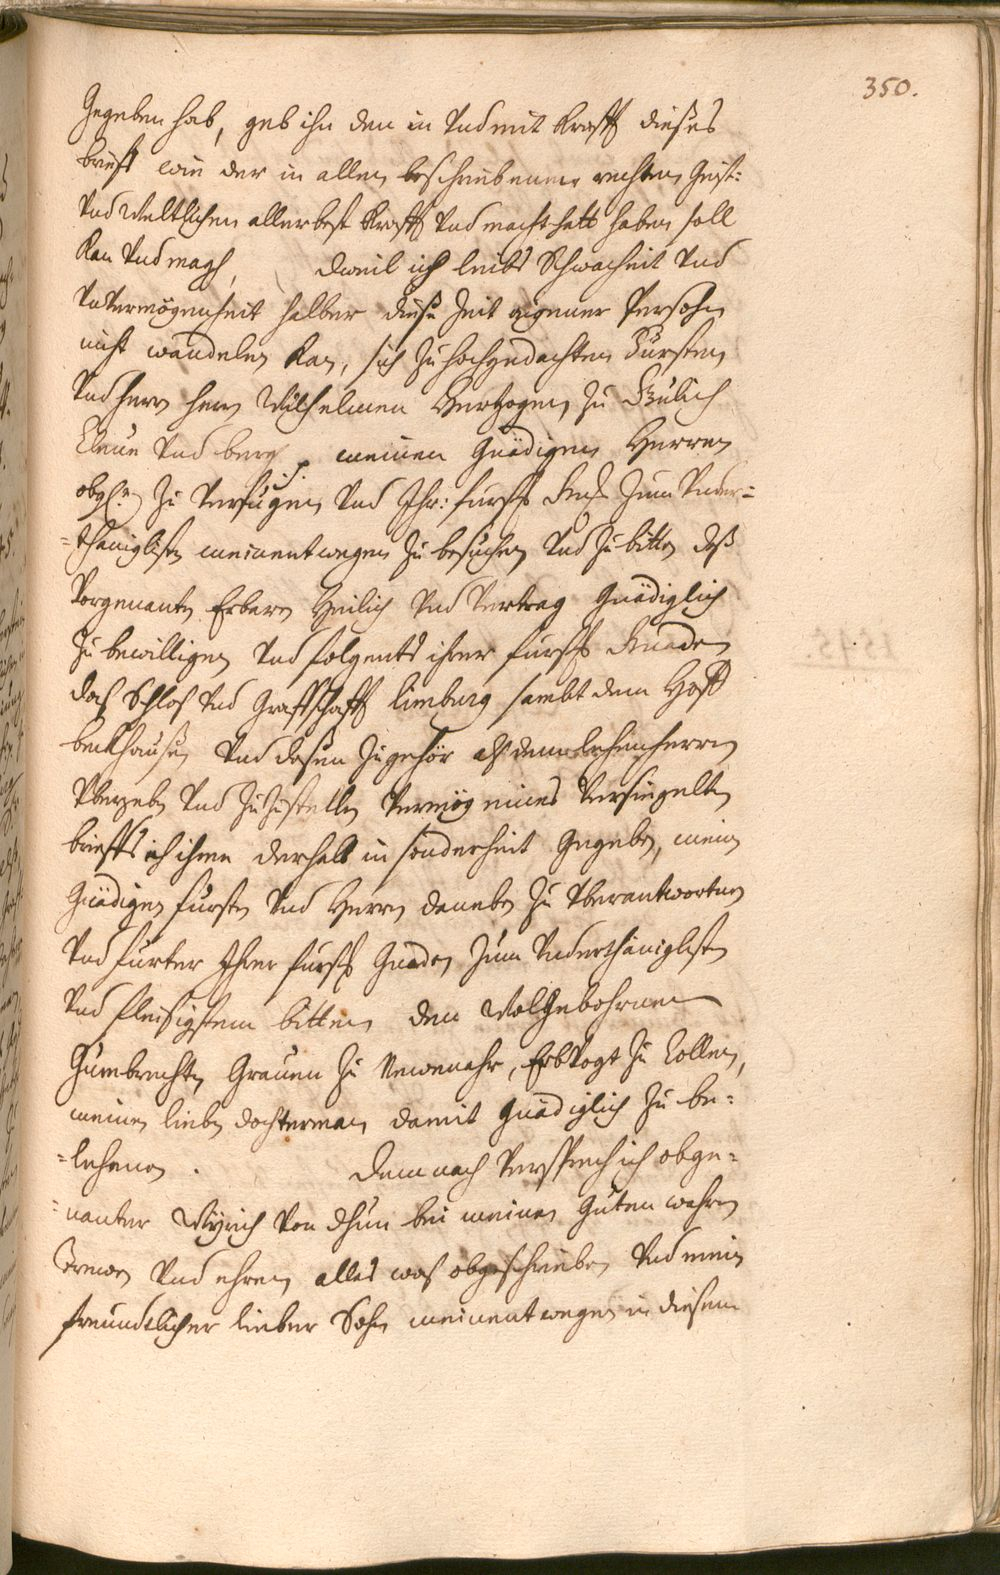 350.
Gegeben hab, geb ihn den in Vnd mit Krafft dieses
briefs wie der in allen beschriebenen rechten Geist:
Vnd Weltlichen allerbest Krafft Vnd macht hatt haben soll
Kan Vnd magh, dweil ich leibs Schwacheit Vnd
Vnvermögenheit halber diese Zeit eigener Persohn
nicht wandelen Kan, sich Zu hochgedachten Fursten
Vnd Hern Hern Wilhelmen Hertzogen Zu Gulich
Cleue Vnd berg p. meinen Gnädigen Herren
obgl. Zu Verfugen Vnd Ihr: furstl Gnd Zum Vnder=
=thäniglisten meinentwegen Zu besuchen Vnd Zu bitten deß
Vorgenanten Erbaren Heilich Vnd Vertrag Gnädiglich
Zu bewilligen Vnd folgents ihrer furstl Gnaden
das Schlos Vnd Graffschafft limburg sambt dem Hoff
beckhausen Vnd desen Zugehör als dem Lehenherren
Vbergeben Vnd Zu Zustellen Vermög eines Versiegelten
brieffs ich ihme derhalb in sonderheit Gegeben, mein
Gnädigen fursten Vnd Herrn daneben Zu Vberantworten
Vnd furter Ihrer furstl Gnaden Zum Vnderthäniglisten
Vnd fleisigstem bitten den Wolgebohrnen
Gumbrechten Grauen Zu Newenahr, ErbVogt Zu Collen,
meinen lieben dochterman damit Gnädiglich Zu be=
=lehenen. Demnach Versprech ich obge=
=nanter Wyrich Von dhun bei meinen Guten wahren
Trewen Vnd ehren alles was obgeschrieben Vnd mein
freundtlicher lieber Sohn meinentwegen in diesem